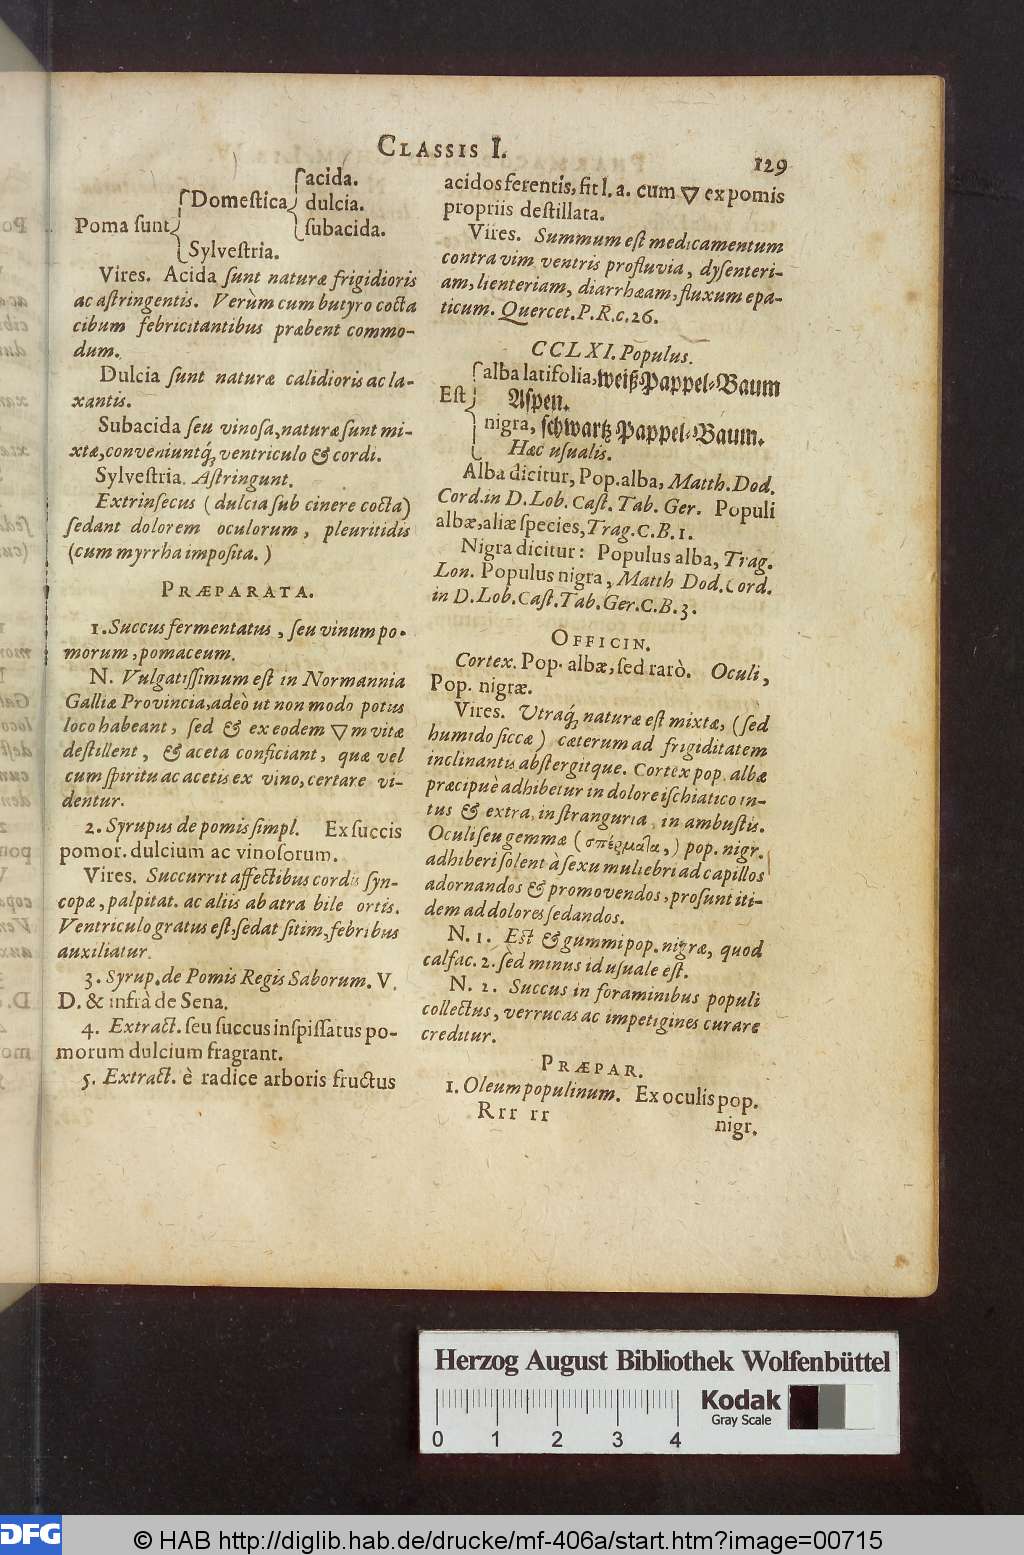 CLASSIS I.
129
Poma sunt { Domestica { acida.
dulcia.
subacida.
Sylvestria.
Vires. Acida sunt naturæ frigidioris
ac astringentis. Verùm cum butyro cocta
cibum febricitantibus præbent commo-
dum.
Dulcia sunt naturæ calidioris ac la-
xantis.
Subacida seu vinosa, naturæ sunt mi-
xtæ, conveniuntq́; ventriculo & cordi.
Sylvestria. Astringunt.
Extrinsecus (dulcia sub cinere cocta)
sedant dolorem oculorum, pleuritidis
(cum myrrha imposita.)
PRÆPARATA.
1. Succus fermentatus, seu vinum po-
morum, pomaceum.
N. Vulgatissimum est in Normannia
Galliæ Provincia, adeò ut non modo potus
loco habeant, sed & ex eodem 🜄m vitæ
destillent, & aceta conficiant, quæ vel
cum spiritu ac acetis ex vino, certare vi-
dentur.
2. Syrupus de pomis simpl. Ex succis
pomor. dulcium ac vinosorum.
Vires. Succurrit affectibus cordis syn-
copæ, palpitat. ac aliis ab atra bile ortis.
Ventriculo gratus est, sedat sitim, febribus
auxiliatur.
3. Syrup. de Pomis Regis Saborum. V.
D. & infrà de Sena.
4. Extract. seu succus inspissatus po-
morum dulcium fragrant.
5. Extract. è radice arboris fructus
acidos ferentis, fit l. a. cum 🜄 ex pomis
propriis destillata.
Vires. Summum est medicamentum
contra vim ventris profluvia, dysenteri-
am, lienteriam, diarrhæam, fluxum epa-
ticum. Quercet. P. R. c. 26.
CCLXI. Populus.
Est { alba latifolia, weiß Pappel-Baum
Aspen.
nigra, schwartz Pappel-Baum.
Hæc usualis.
Alba dicitur, Pop. alba, Matth. Dod.
Cord. in D. Lob. Cast. Tab. Ger. Populi
albæ, aliæ species, Trag. C. B. 1.
Nigra dicitur: Populus alba, Trag.
Lon. Populus nigra, Matth Dod. Cord.
in D. Lob. Cast. Tab. Ger. C. B. 3.
OFFICIN.
Cortex. Pop. albæ, sed rarò. Oculi,
Pop. nigræ.
Vires. Utraq́; naturæ est mixtæ, (sed
humido siccæ) cæterum ad frigiditatem
inclinantis abstergitque. Cortex pop. albæ
præcipuè adhibetur in dolore ischiatico in-
tus & extra, in stranguria, in ambustis.
Oculi seu gemmæ (σπέρματα,) pop. nigr.
adhiberi solent à sexu muliebri ad capillos
adornandos & promovendos, prosunt iti-
dem ad dolores sedandos.
N. 1. Est & gummi pop. nigræ, quod
calfac. 2. sed minus id usuale est.
N. 2. Succus in foraminibus populi
collectus, verrucas ac impetigines curare
creditur.
PRÆPAR.
1. Oleum populinum. Ex oculis pop.
Rrr rr
nigr.
Herzog August Bibliothek Wolfenbüttel
Kodak
Gray Scale
0 1 2 3 4
DFG
© HAB http://diglib.hab.de/drucke/mf-406a/start.htm?image=00715